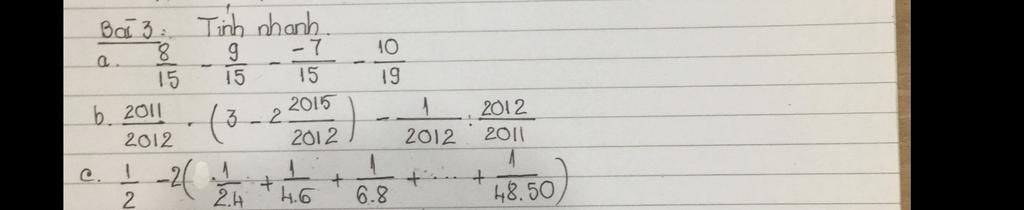 Bài 3: Tính nhanh.
a. 8/15 - 9/15 - -7/15 - 10/19
b. 2011/2012 . (3 - 2 2015/2012) - 1/2012 : 2012/2011
c. 1/2 - 2(1/2.4 + 1/4.6 + 1/6.8 + ... + 1/48.50)